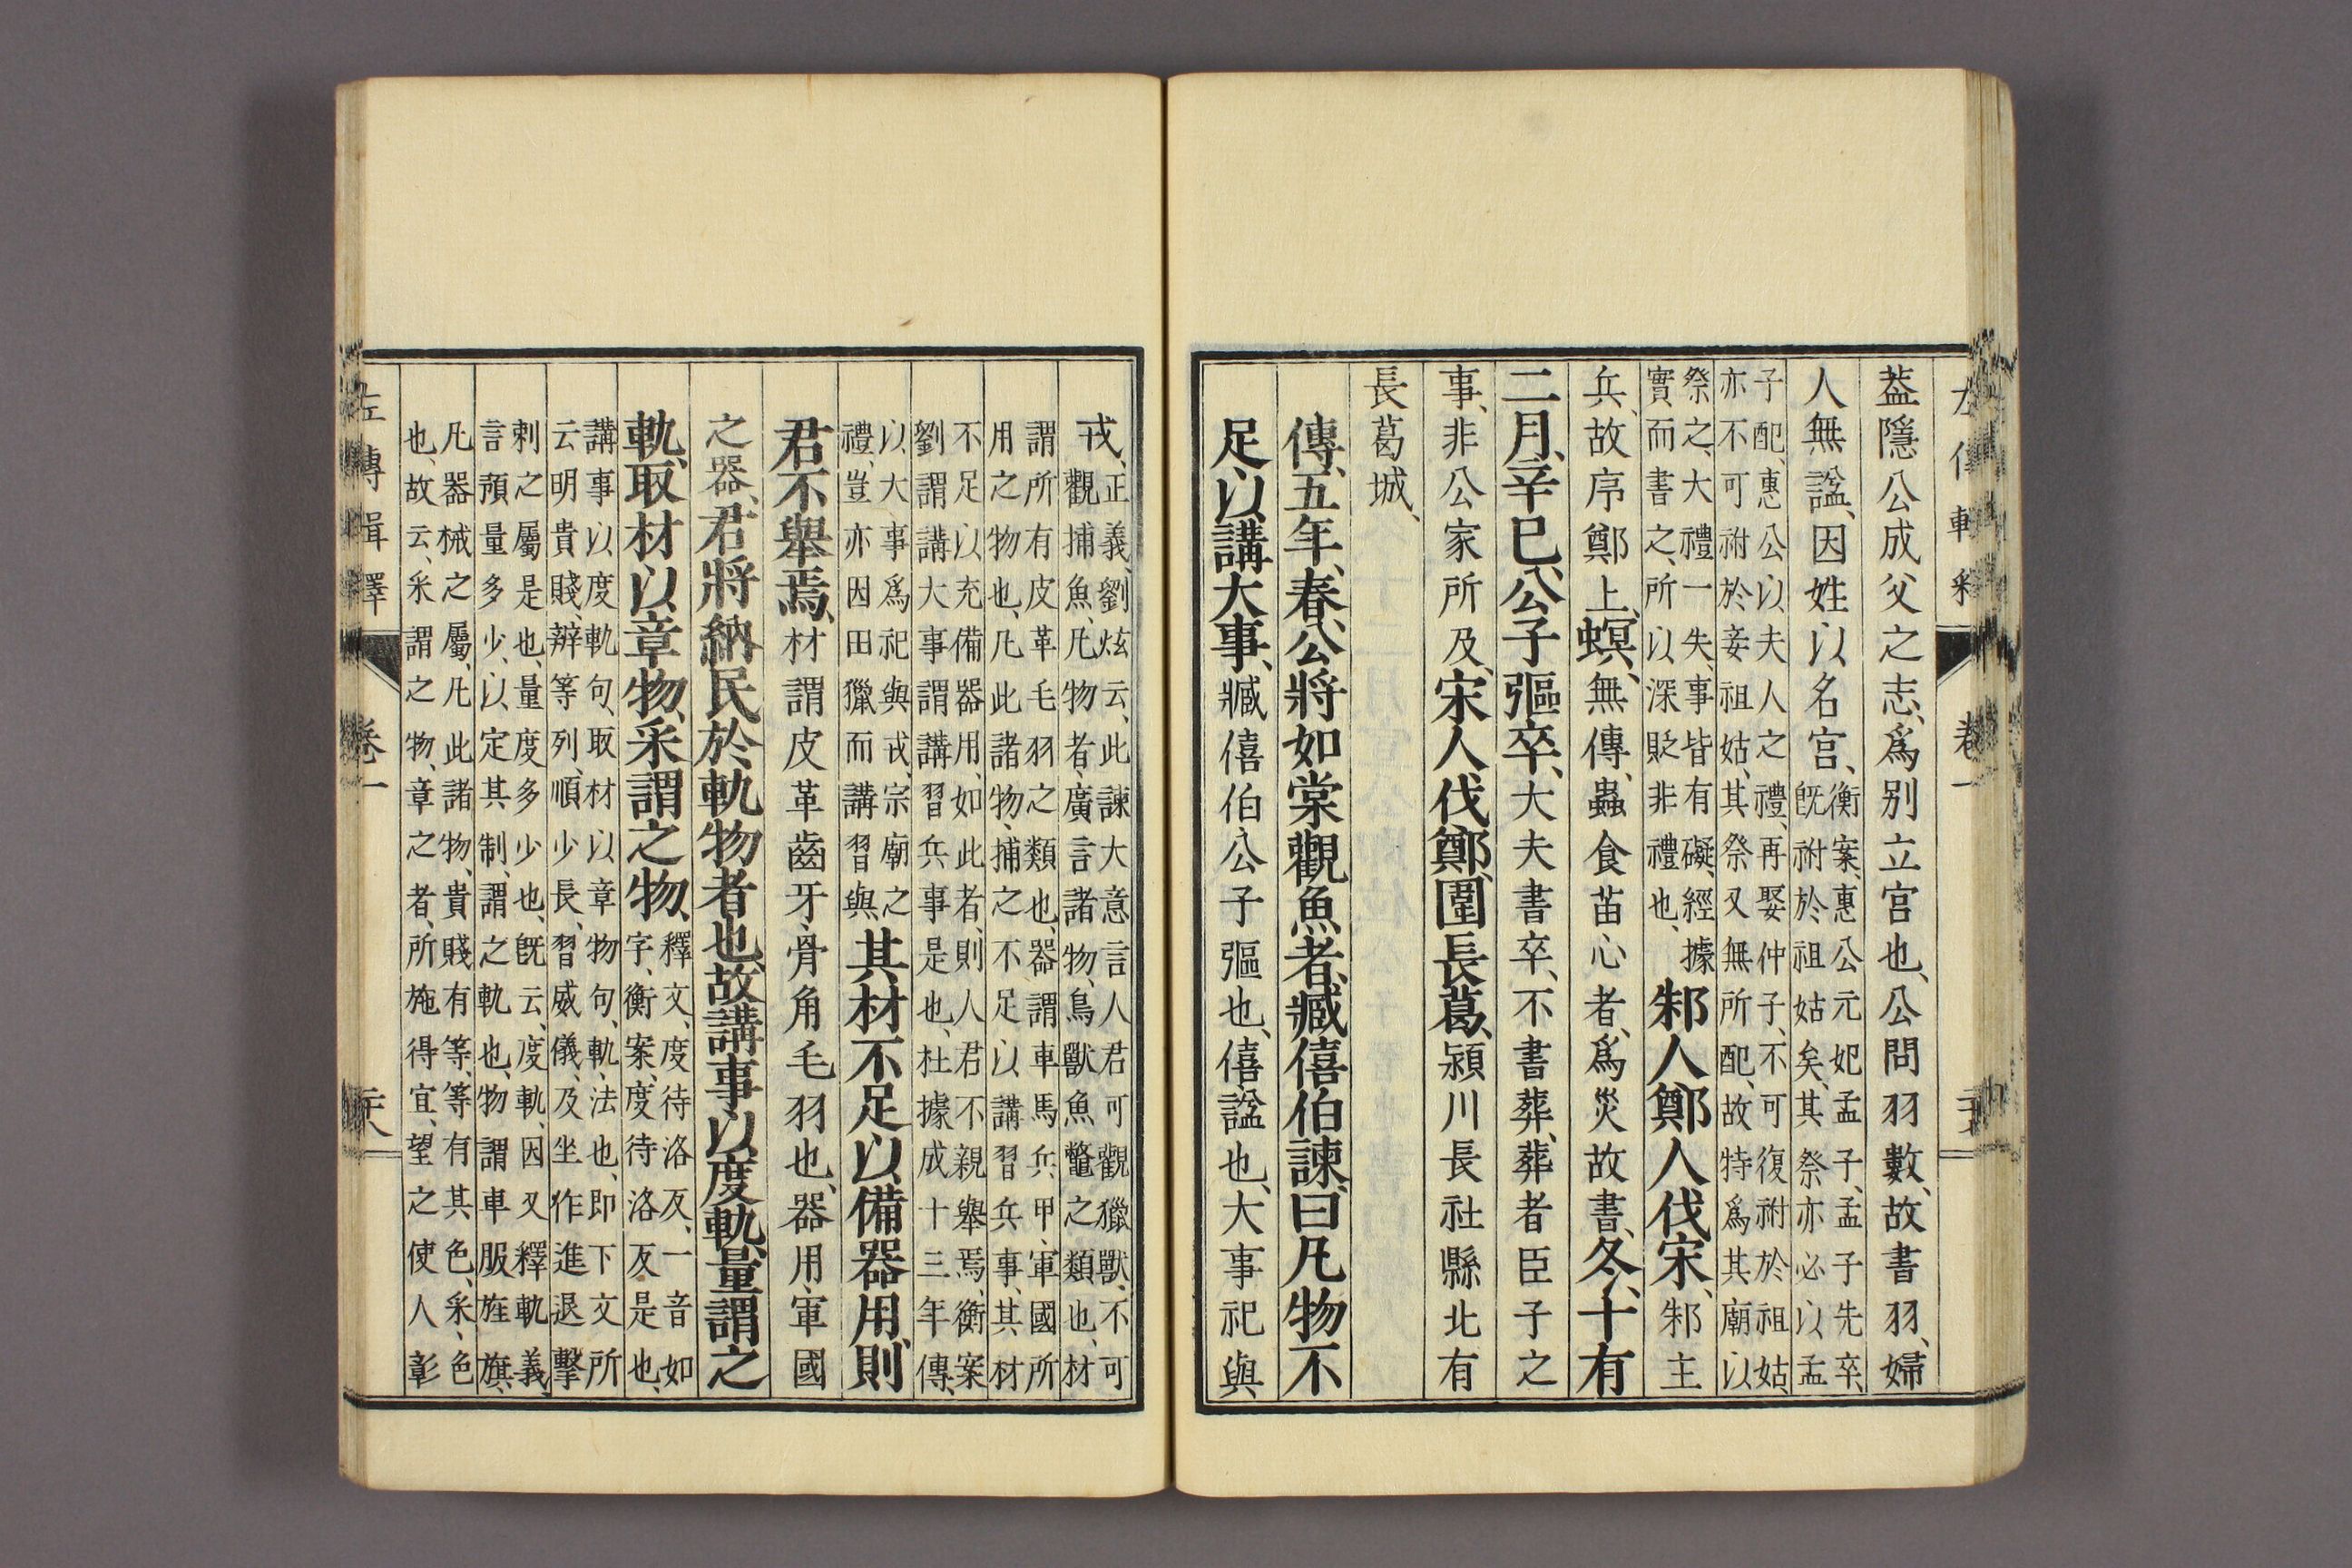 蓋隱公成父之志、爲別立宮也、公問羽數、故書羽、婦
人無諡、因姓以名宮、
衡案、惠公元妃孟子、孟子先卒、
既祔於祖姑矣、其祭亦必以孟
子配、惠公以夫人之禮、再娶仲子、不可復祔於祖姑、
亦不可祔於妾祖姑、其祭又無所配、故特爲其廟以
祭之、大禮一失、事皆有礙、經據
實而書之、所以深貶非禮也、
邾人鄭人伐宋、邾主
兵、故序鄭上、螟、無傳、蟲食苗心者、爲災故書、冬、十有
二月、辛巳、公子彄卒、大夫書卒、不書葬、葬者臣子之
事、非公家所及、宋人伐鄭、圍長葛、潁川長社縣北有
長葛城、
傳、五年、春、公將如棠觀魚者、臧僖伯諫、曰凡物不
足以講大事、臧僖伯公子彄也、僖諡也、大事祀與
戎、
正義、劉炫云、此諫大意言人君可觀獵獸、不可
觀捕魚、凡物者、廣言諸物、鳥獸魚鼈之類也、材
謂所有皮革毛羽之類也、器謂車馬兵甲、軍國所
用之物也、凡此諸物、捕之不足以講習兵事、其材
不足以充備器用、如此者、則人君不親舉焉、衡案
劉謂講大事謂講習兵事是也、杜據成十三年傳、
以大事爲祀與戎、宗廟之
禮、豈亦因田獵而講習與
其材不足以備器用、則
君不舉焉、材謂皮革齒牙骨角毛羽也、器用、軍國
之器、君將納民於軌物者也、故講事以度軌、量謂之
軌、取材以章物、采謂之物、
釋文、度待洛反、一音如
字、衡案、度待洛反是也、
講事以度軌句、取材以章物句、軌、法也、即下文所
云明貴賤、辨等列、順少長、習威儀、及坐作進退擊
刺之屬是也、量度多少也、既云、度軌、因又釋軌義
言預量多少、以定其制、謂之軌也、物謂車服旌旗、
凡器械之屬、凡此諸物、貴賤有等、等有其色、采、色
也、故云、采謂之物、章之者、所施得宜、望之使人彰
左傳輯釋 卷一